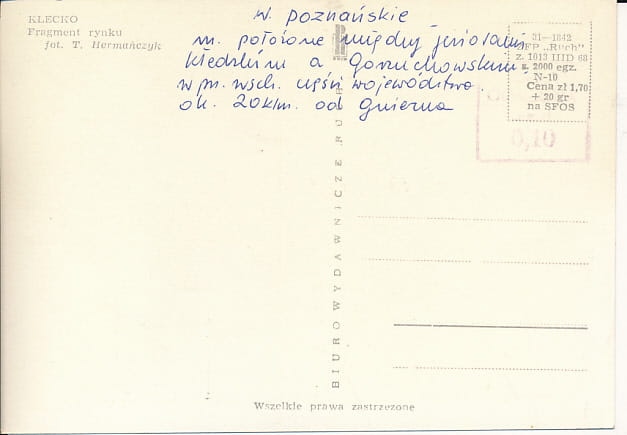 KLECKO
Fragment rynku
fot. T. Hermańczyk
w. poznańskie
m. położone między jeziorami
Kłeckim a Gorzuchowskim
w pn. wsch. części województwa
ok. 20 km. od Gniezna
31—1842
"Ruch"
z. 1013 IIID 68
n. 2000 egz.
N-10
Cena zł 1,70
+ 20 gr
na SFOS
0,10
BIURO WYDAWNICZE RUCH
Wszelkie prawa zastrzeżone